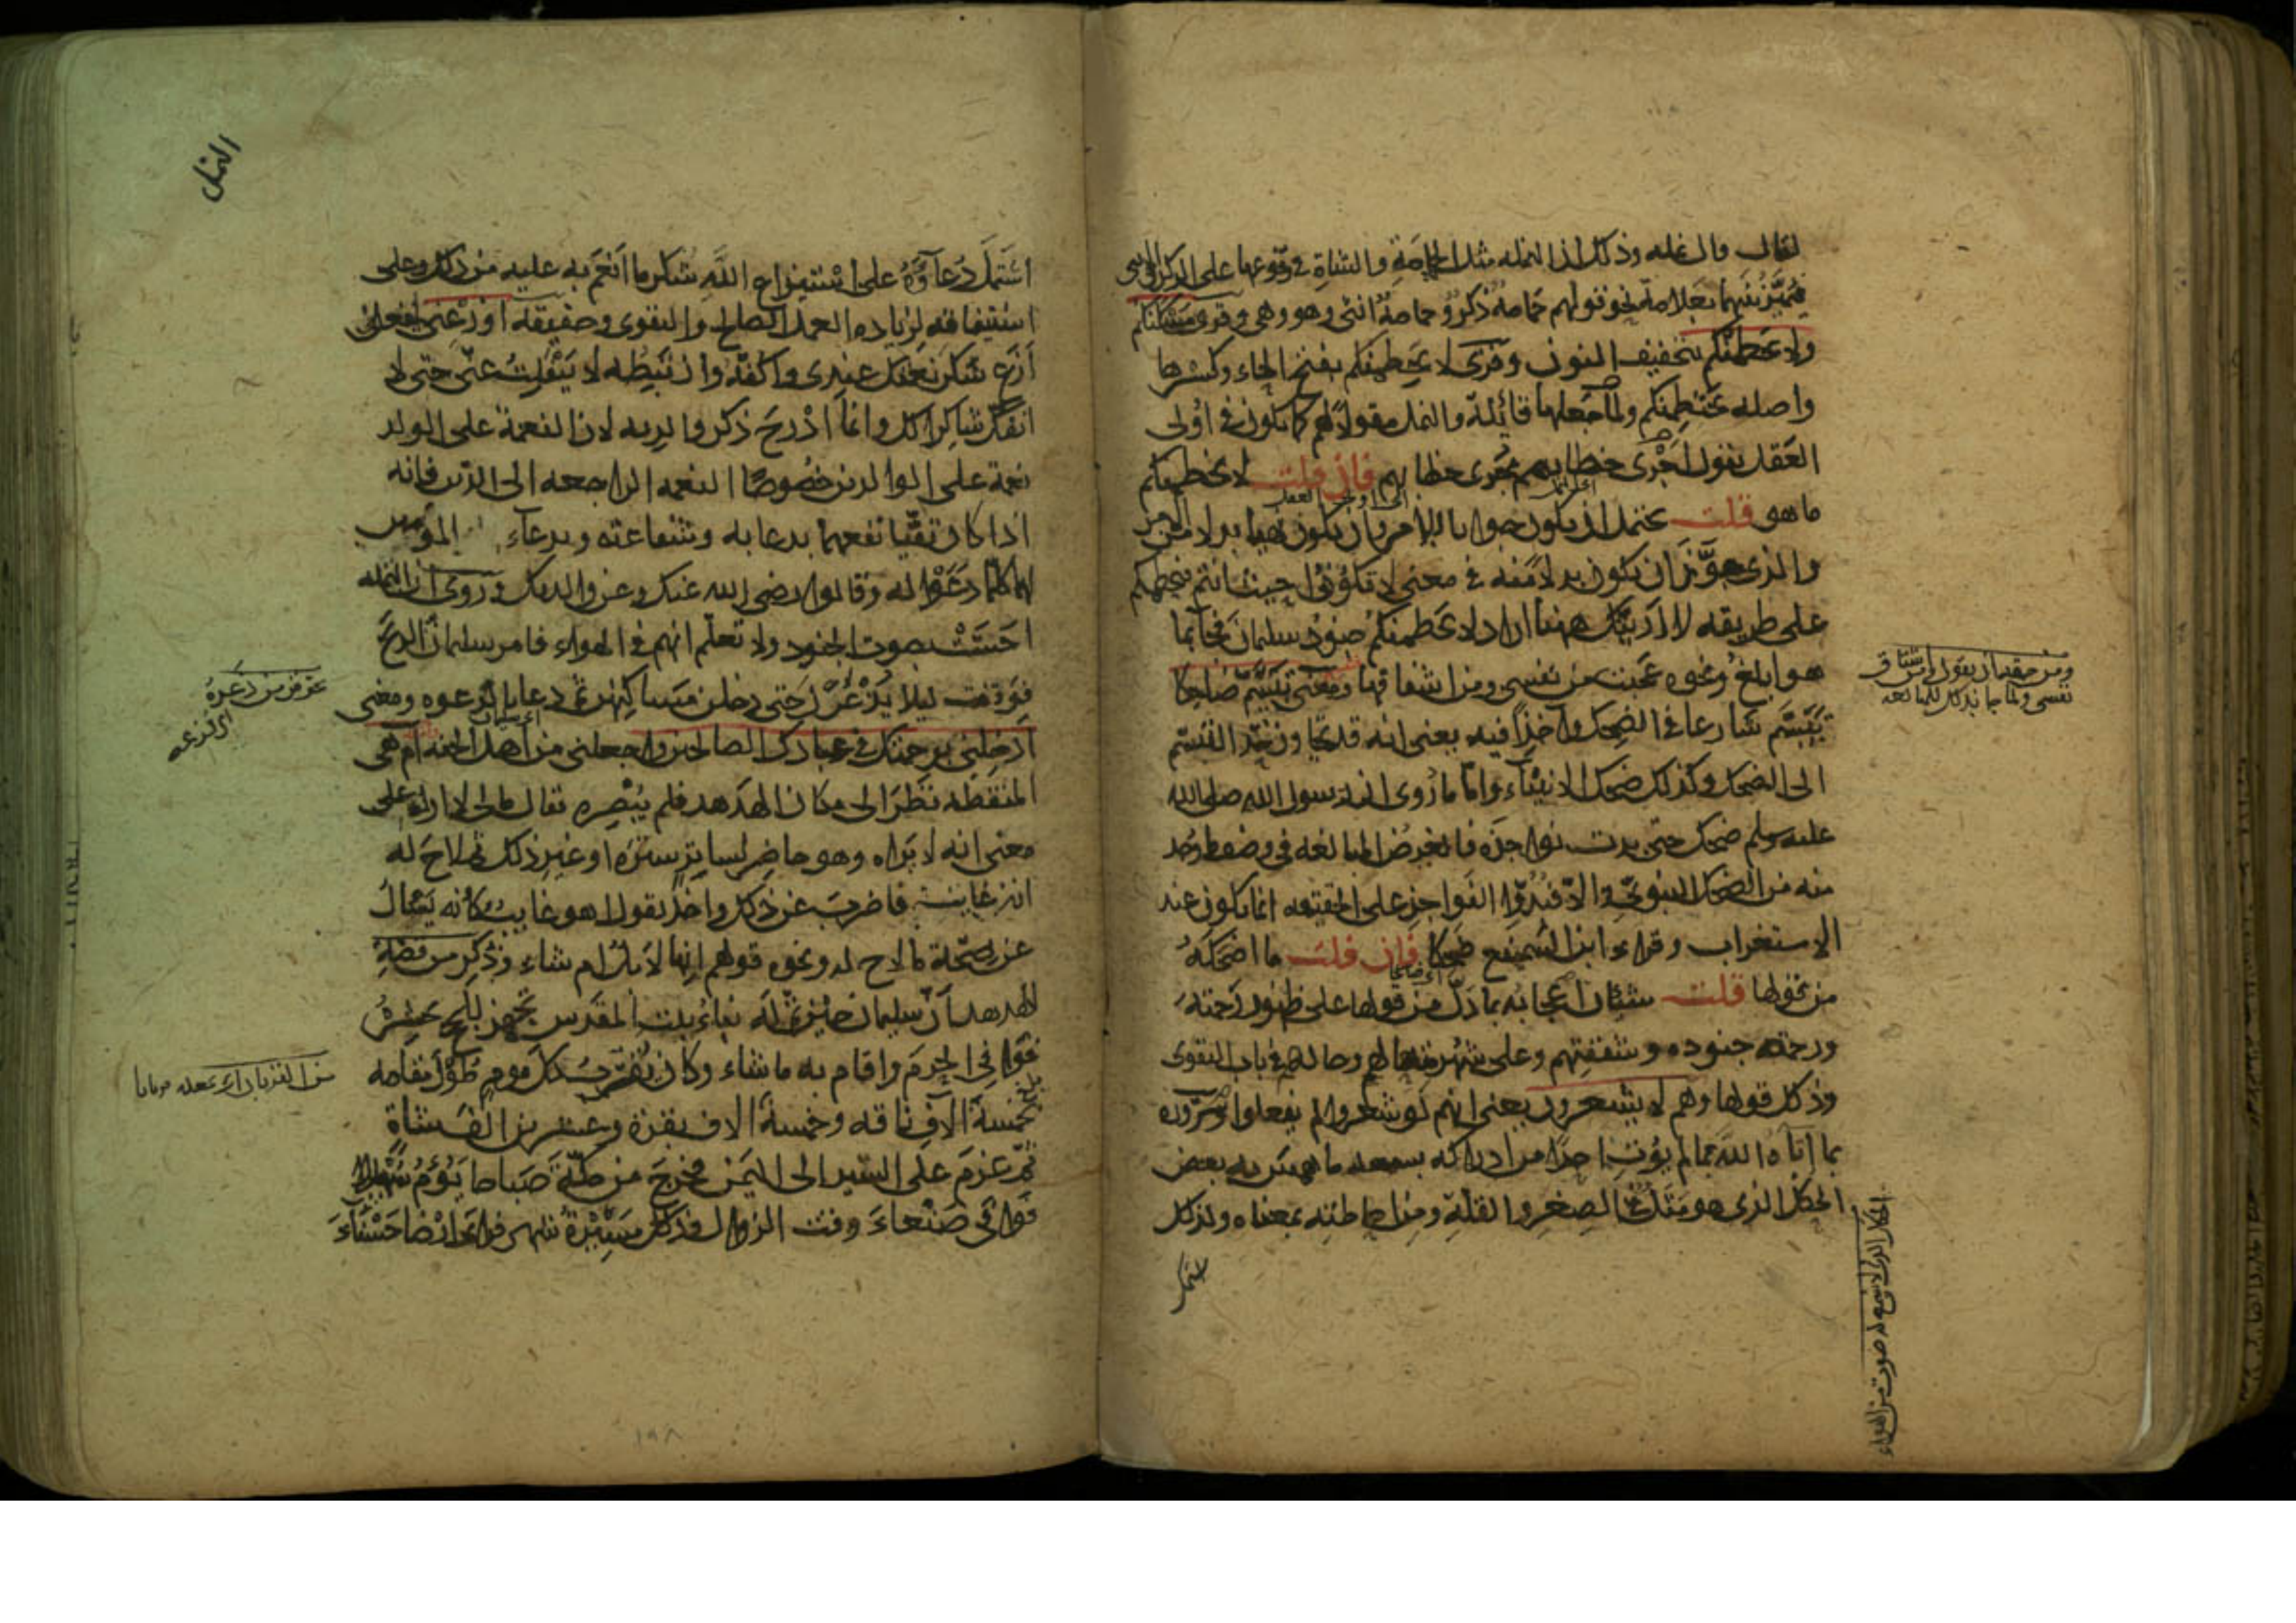 لقال قال نمله وذلك ان النمله مثل الحمامة والشاة في وقوعها على الذكر والانثى
فيميز بينهما بعلامة نحو قولهم حمامة ذكر وحمامة انثى وهو وهي وقرى مسكنكم
ولا يحطمنكم بتخفيف النون وقرى لا يحطمنكم بفتح الحاء وكسرها
واصله يحتطمنكم ولما جعلها قائلة والنمل مقولا لهم كما يكون في اولى
العقل يقول اجرى خطابهم مجرى خطابهم فان قلت لا يحطمنكم
ما هو قلت يحتمل ان يكون جوابا للامر وان يكون نهيا بدلا من الامر
والذى جوز ان يكون بدلا منه في معنى لا تكونوا حيث انتم فيحطمكم
على طريقه لا ارينك ههنا اراد لا يحطمنكم جنود سليمان فجاء بما
هو ابلغ ونحوه عجبت من نفسى ومن اشفاقها ومعنى تبسم ضاحكا
تبسم شارعا في الضحك واخذا فيه يعنى انه قد تجاوز حد التبسم
الى الضحك وكذلك ضحك الانبياء واما ما روى ان رسول الله صلى الله
عليه وسلم ضحك حتى بدت نواجذه فالغرض المبالغه في وصف ما وجد
منه من الضحك النبوى والا فبدو النواجذ على الحقيقه انما يكون عند
الاستغراب وقراءة ابن السميفع ضحكا فان قلت ما اضحكه
من قولها قلت شيئان اعجابه بما دل من قولها على ظهور رحمته
ورحمة جنوده وشفقتهم وعلى شهرة حاله وحالهم في باب التقوى
وذلك قولها وهم لا يشعرون يعنى انهم لو شعروا لم يفعلوا وسروره
بما اتاه الله مما لم يؤت احدا من ادراكه بسمعه ما همس به بعض
الحكل الذى هو مثل في الصغر والقلة ومن احاطته بمعناه ولذلك
اشتمل
ومن حقه ان يقول
نفسى
الحكل الذى لا يسمع له صوت من الهواء
النمل
اشتمل دعاؤه على استيزاع الله شكر ما انعم به عليه من ذلك وعلى
استيفاقه لزياده العمل الصالح والتقوى وحقيقه اوزعنى اجعلنى
ازع شكر نعمتك عندى واكفه وارتبطه لا ينفلت عنى حتى لا
انفك شاكرا لك وانما ادرج ذكر والديه لان النعمة على الولد
نعمة على الوالدين خصوصا النعمه الراجعه الى الدين فانه
اذا كان تقيا نفعهما بدعايه وشفاعته وبدعاء المؤمنين
لهما كلما دعوا له وقالوا رضى الله عنك وعن والديك وروى ان النمله
احست بصوت الجنود ولا تعلم انهم في الهواء فامر سليمان الريح
فوقفت ليلا يذعرن حتى دخلن مساكنهن ثم دعا بالدعوه ومعنى
ادخلنى برحمتك في عبادك الصالحين واجعلنى من اهل الجنه ام هى
المنقطعه نظر الى مكان الهدهد فلم يبصره فقال مالى لا اراه على
معنى انه لا يراه وهو حاضر لساتر ستره او غير ذلك ثم لاح له
انه غايب فاضرب عن ذلك واخذ يقول اهو غايب كانه يسال
عن صحة ما لاح له ونحوه قولهم انها لابل ام شاء وذكر من قصه
الهدهد ان سليمان حين تم له بناء بيت المقدس تجهز للحج بحشره
فوافى الحرم واقام به ما شاء وكان يقرب كل يوم طول مقامه
بخمسة الاف ناقه وخمسة الاف بقرة وعشرين الف شاة
ثم عزم على السير الى اليمن فخرج من مكة صباحا يؤم سهيلا
فوافى صنعاء وقت الزوال وذلك مسيرة شهر فراى ارضا حسناء
من القربان
١٩٨